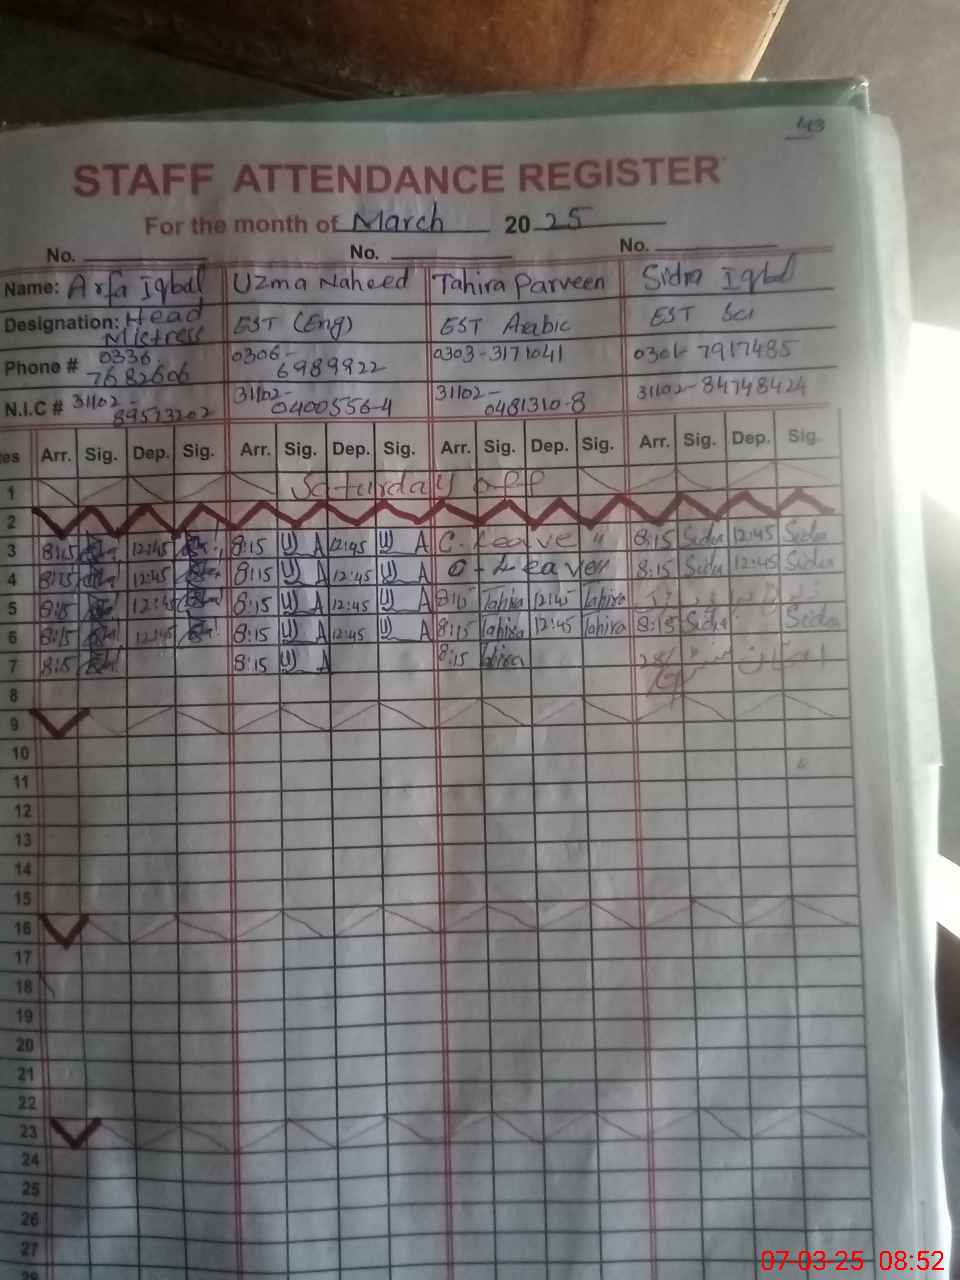 443
STAFF ATTENDANCE REGISTER
For the month of March 2025
No. No. No.
Name: Arfa Iqbal Uzma Naheed Tahira Parveen Sidra Iqbal
Designation: Head Mistress EST (Eng) EST Arabic EST Sci
Phone # 0336-7682606 0306-6989922 0303-3171041 0301-7917485
N.I.C # 31102-89573202 31102-0400556-4 31102-0481310-8 31102-84748424
tes Arr. Sig. Dep. Sig. Arr. Sig. Dep. Sig. Arr. Sig. Dep. Sig. Arr. Sig. Dep. Sig.
1 Saturday off
2
3 8:15 12:45 8:15 U A 12:45 U A C. Leave " 8:15 Sidra 12:45 Sidra
4 8:15 12:45 8:15 U A 12:45 U A C-Leave " 8:15 Sidra 12:45 Sidra
5 8:15 12:45 8:15 U A 12:45 U A 8:15 Tahira 12:45 Tahira
6 8:15 12:45 8:15 U A 12:45 U A 8:15 Tahira 12:45 Tahira 8:15 Sidra Sidra
7 8:15 8:15 U A 8:15 Tahira
8
9
10
11
12
13
14
15
16
17
18
19
20
21
22
23
24
25
26
27
28
07-03-25 08:52